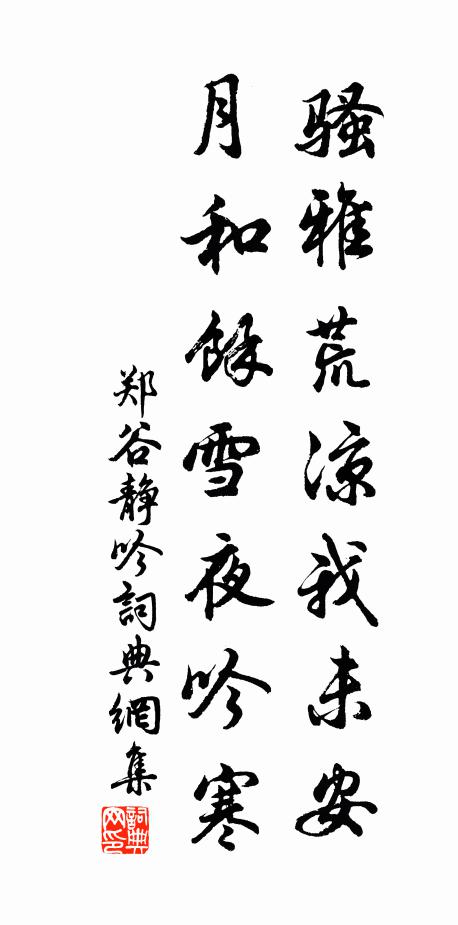 骚雅荒凉我未安
月和餘雪夜吟寒
郑谷静吟詞典網集
詞典网印